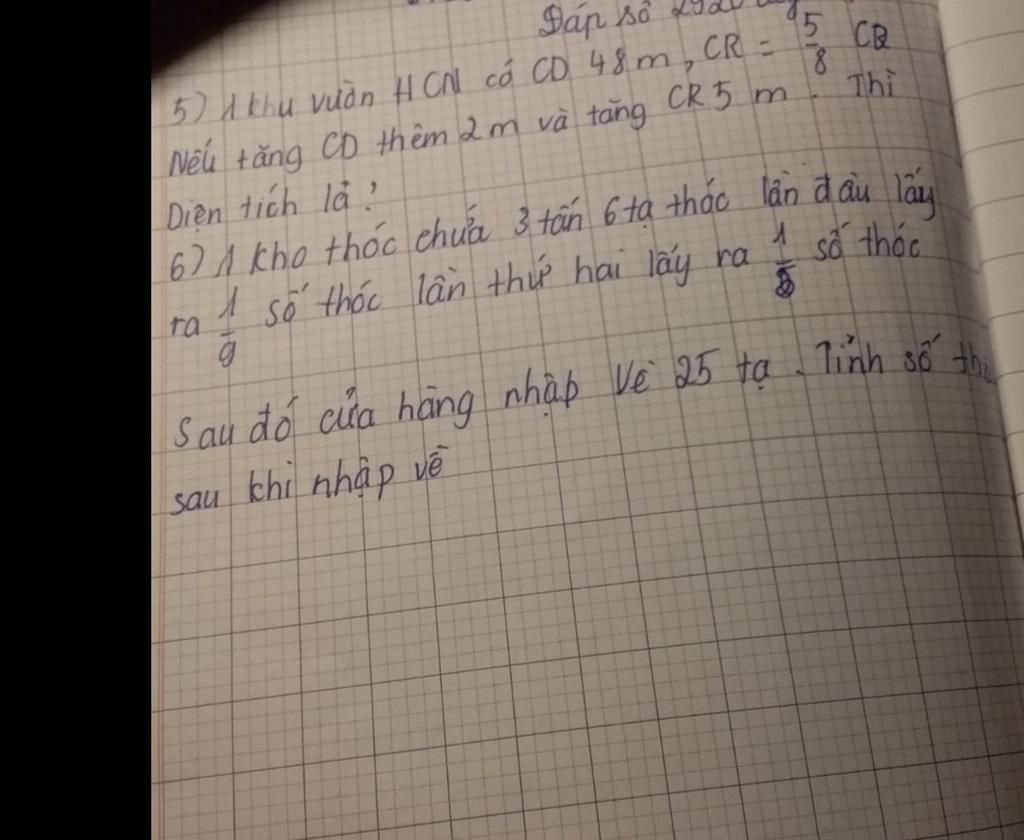 Đáp số
5) 1 khu vườn HCN có CD 48m, CR = 5/8 CD
Nếu tăng CD thêm 2m và tăng CR 5 m. Thì
Diện tích là?
6) 1 kho thóc chứa 3 tấn 6 tạ thóc lần đầu lấy
ra 1/9 số thóc lần thứ hai lấy ra 1/8 số thóc
Sau đó cửa hàng nhập về 25 tạ. Tính số
sau khi nhập về